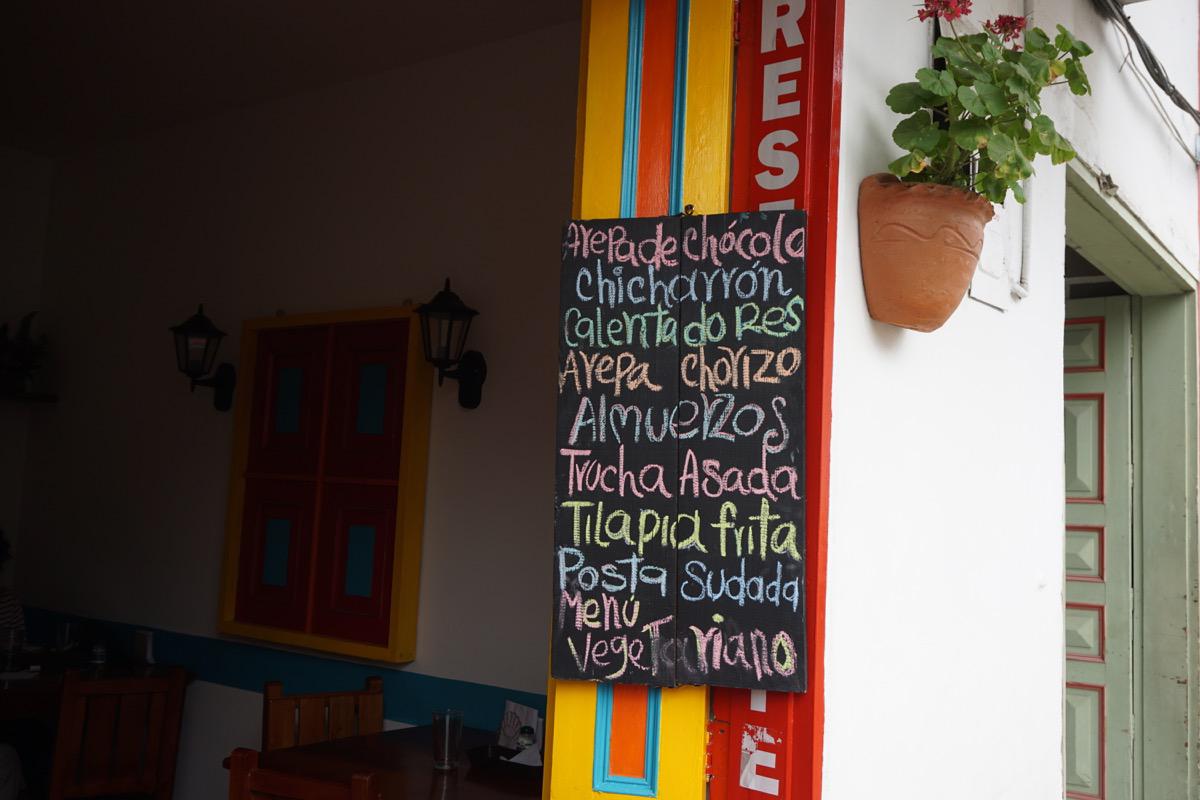 RES
Arepa de chócolo
chicharrón
Calentado Res
Arepa chorizo
Almuerzos
Trucha Asada
Tilapia frita
Posta Sudada
Menú
vegeTariano
TE